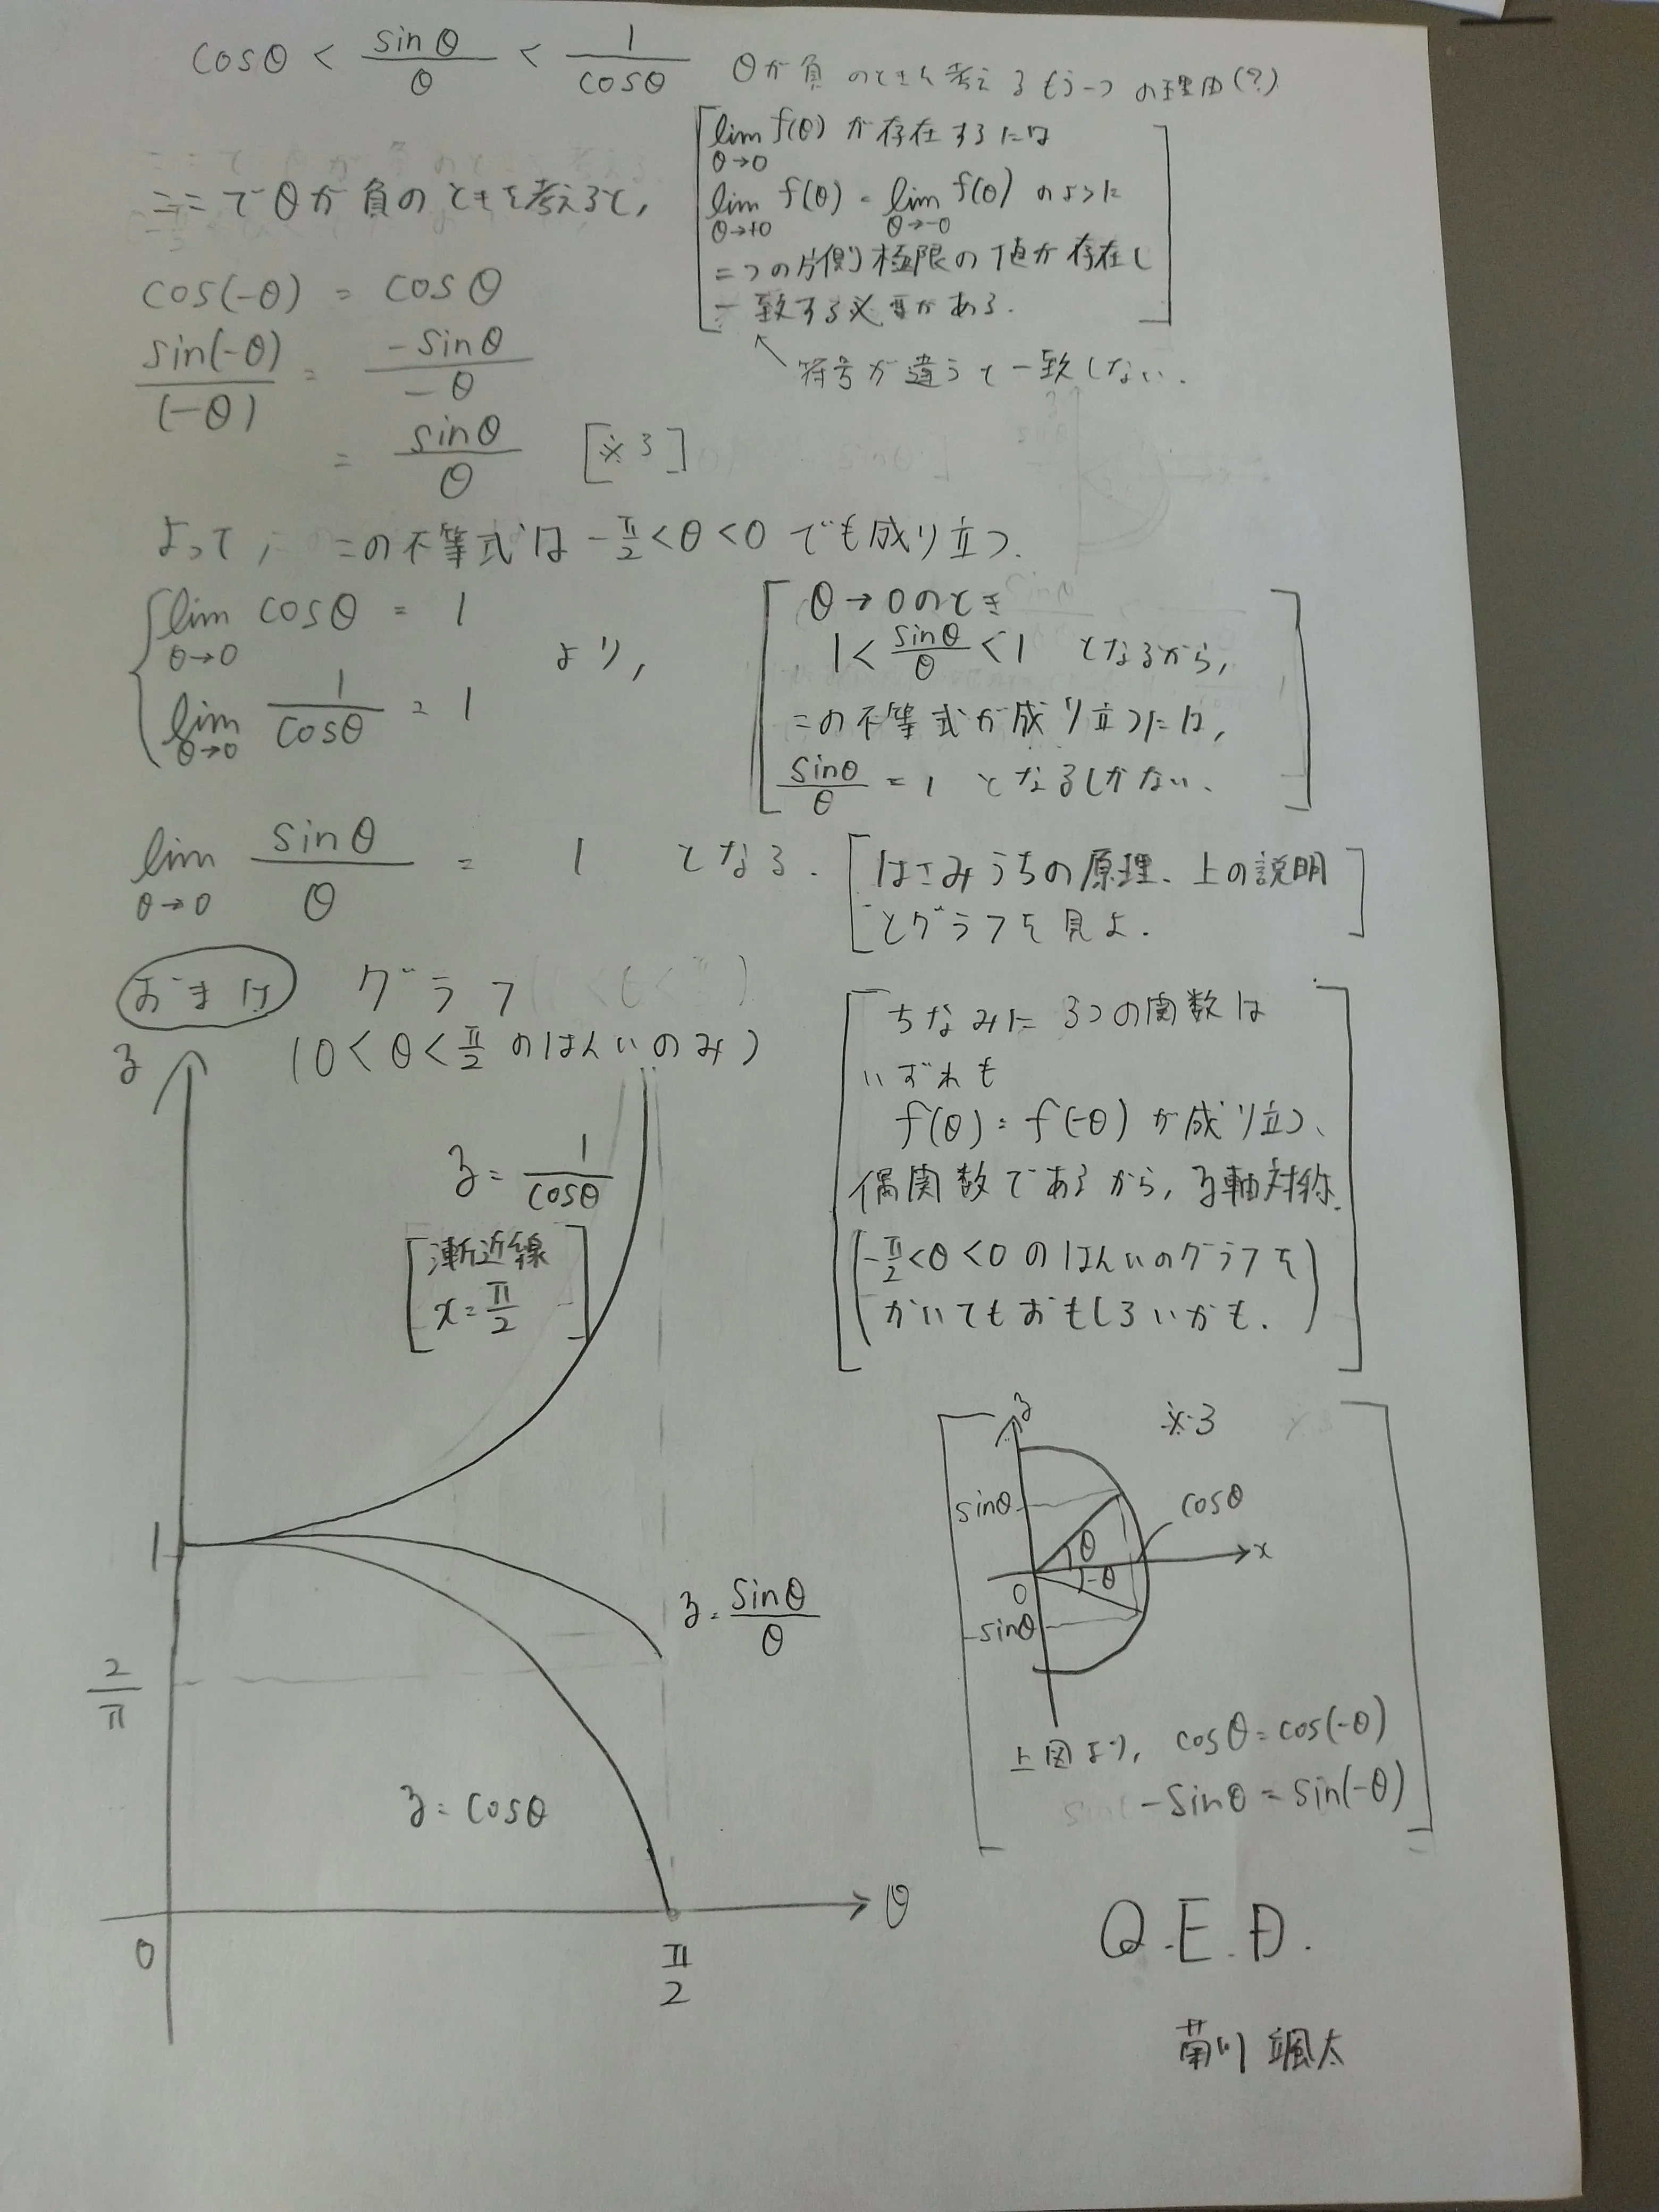 cosθ < sinθ/θ < 1/cosθ
θが負のときを考えるもう一つの理由(?)
lim θ→0 f(θ) が存在するには
lim θ→+0 f(θ) = lim θ→-0 f(θ) のように
二つの片側極限の値が存在し
一致する必要がある.
符号が違うと一致しない.
ここでθが負のときを考えると,
cos(-θ) = cosθ
sin(-θ)/(-θ) = -sinθ/-θ
= sinθ/θ [※3]
よって, この不等式は -π/2<θ<0 でも成り立つ.
lim θ→0 cosθ = 1
lim θ→0 1/cosθ = 1
より,
θ→0のとき
1< sinθ/θ <1 となるから,
この不等式が成り立つには,
sinθ/θ = 1 となるしかない.
lim θ→0 sinθ/θ = 1 となる.
[はさみうちの原理、上の説明
とグラフを見よ.]
おまけ グラフ
(0<θ<π/2 のはんいのみ)
ちなみに 3つの関数は
いずれも
f(θ)=f(-θ) が成り立つ、
偶関数であるから, y軸対称.
(-π/2<θ<0 のはんいのグラフを
かいてもおもしろいかも.)
y
y= 1/cosθ
[漸近線
x=π/2]
1
y= sinθ/θ
2/π
y=cosθ
0
π/2
θ
※3
y
sinθ
cosθ
θ
x
0
-θ
-sinθ
上図より, cosθ=cos(-θ)
-sinθ=sin(-θ)
Q.E.D.
菊川 颯太